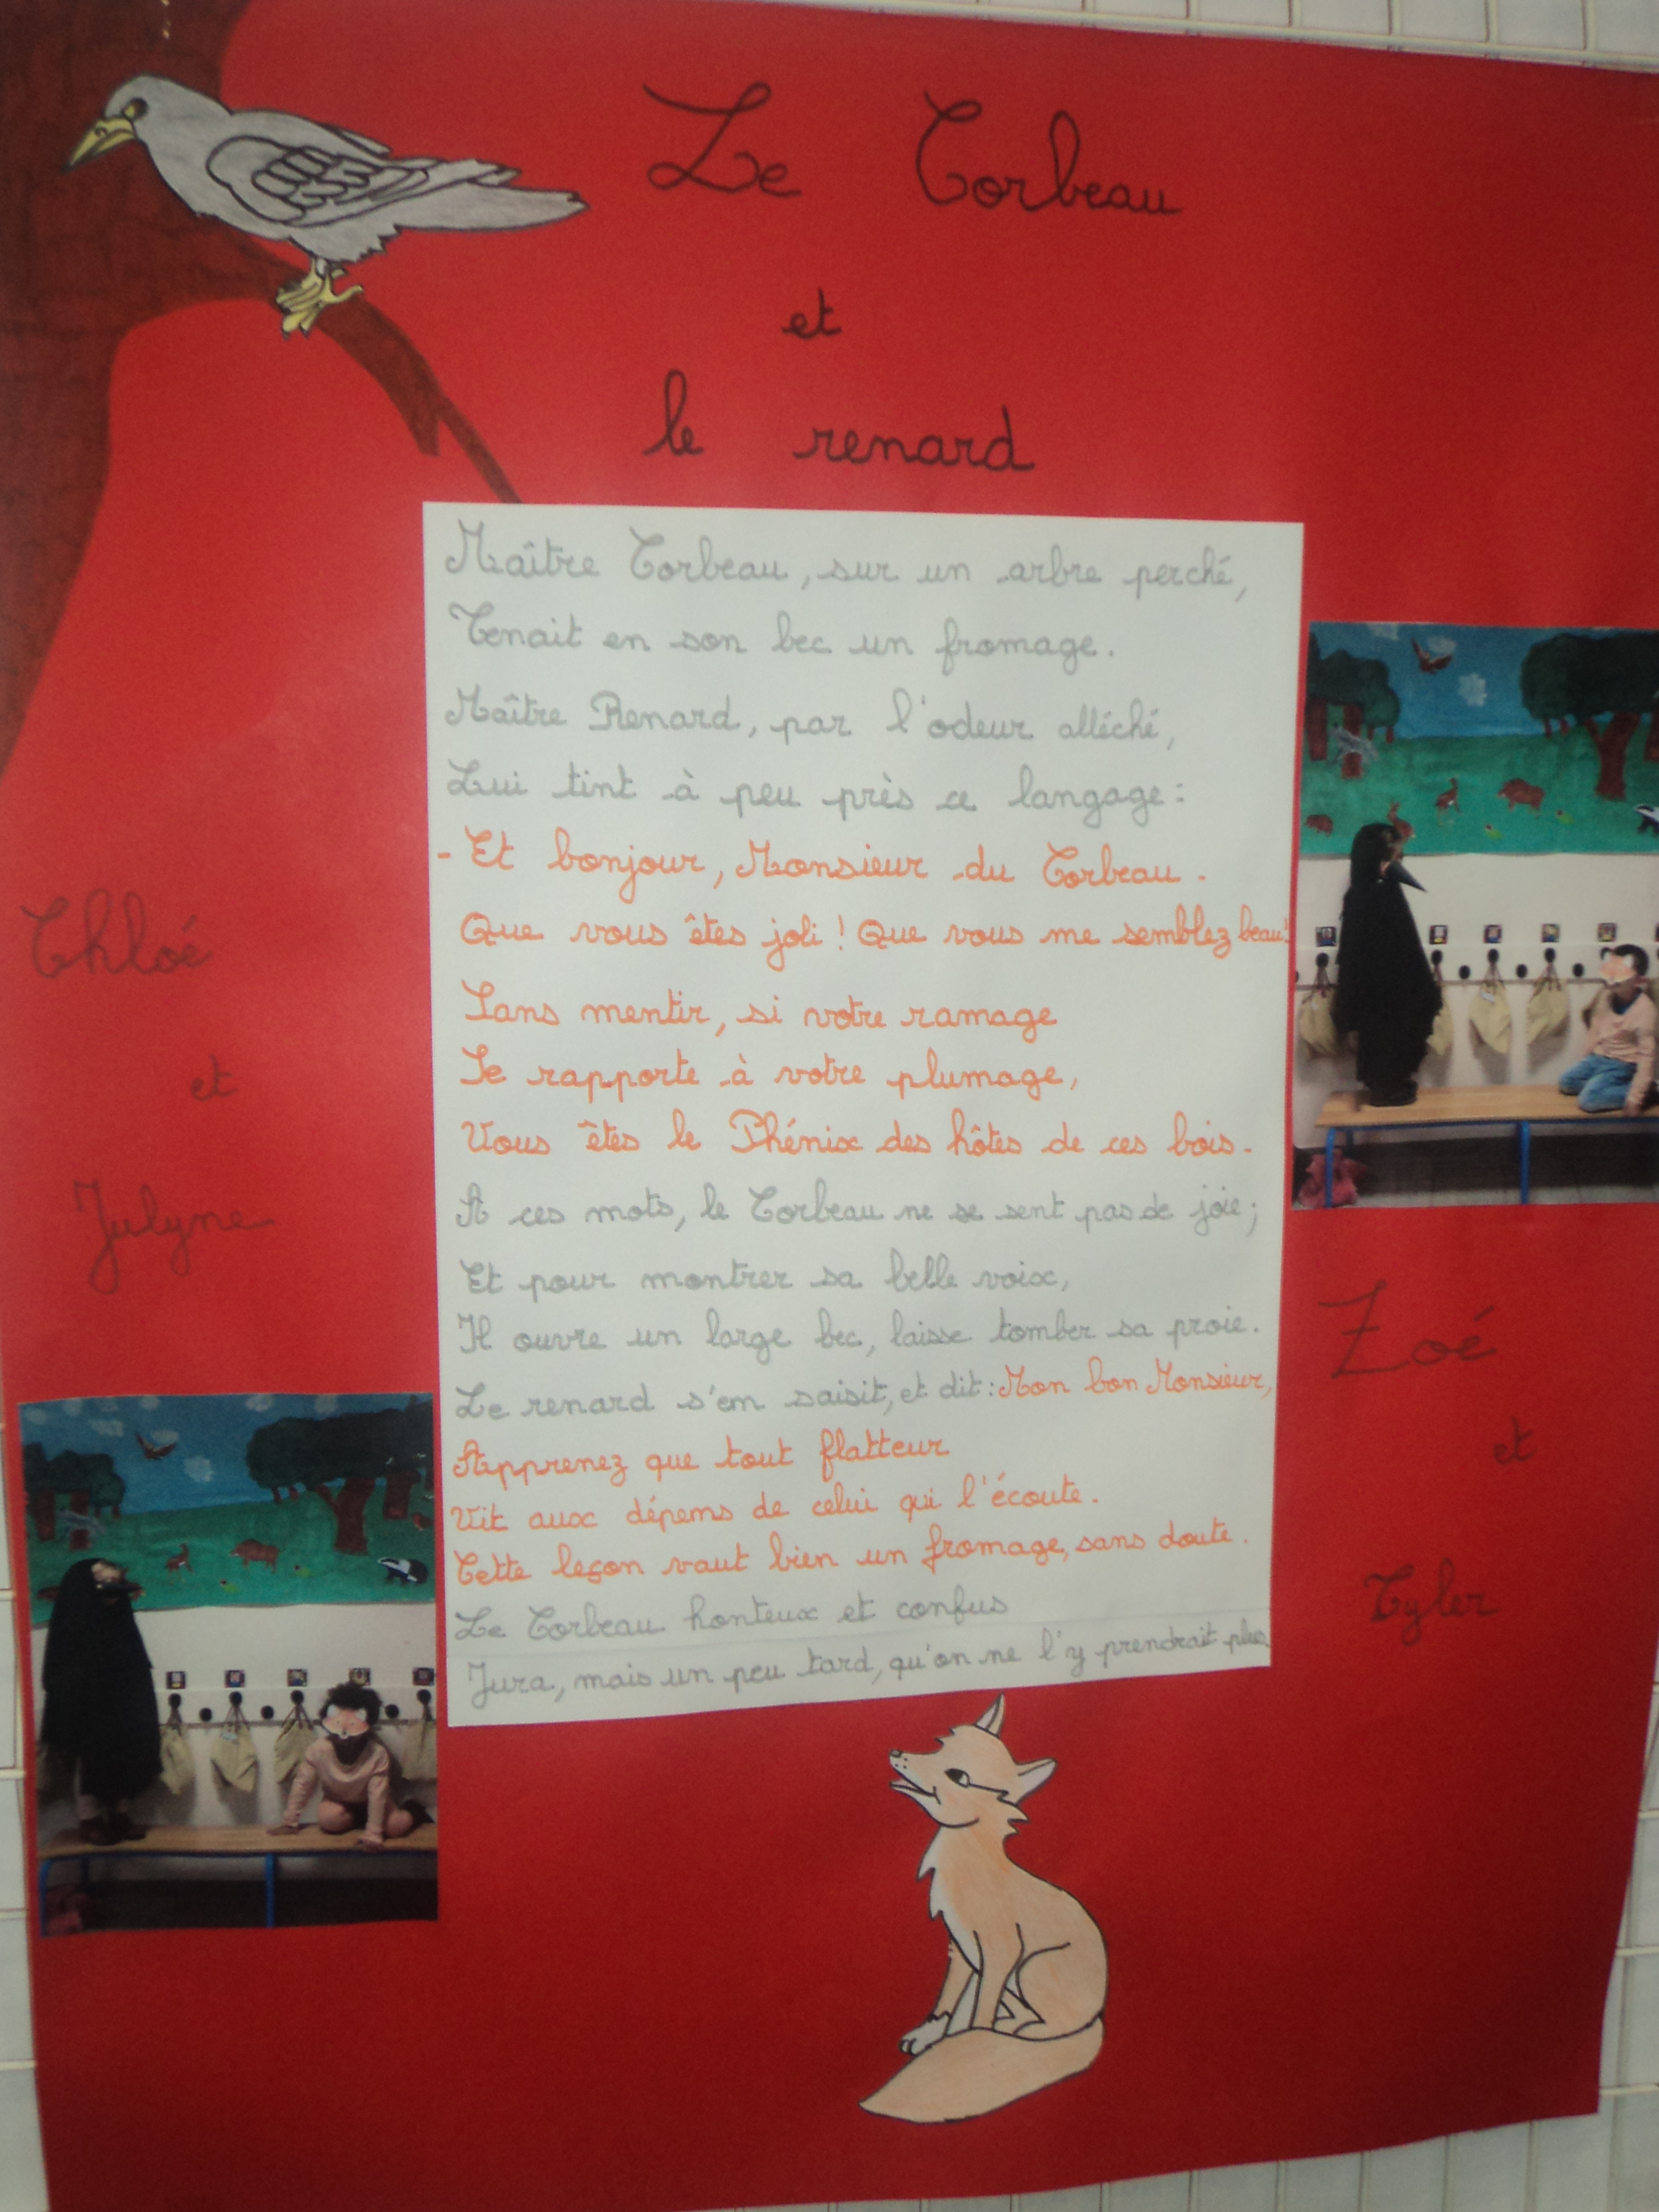 Le Corbeau
et
le renard
Maître Corbeau, sur un arbre perché,
Tenait en son bec un fromage.
Maître Renard, par l'odeur alléché,
Lui tint à peu près ce langage:
- Et bonjour, Monsieur du Corbeau.
Que vous êtes joli! Que vous me semblez beau!
Sans mentir, si votre ramage
Se rapporte à votre plumage,
Vous êtes le Phénix des hôtes de ces bois.
A ces mots, le Corbeau ne se sent pas de joie;
Et pour montrer sa belle voix,
Il ouvre un large bec, laisse tomber sa proie.
Le renard s'em saisit, et dit: Mon bon Monsieur,
Apprenez que tout flatteur
Vit aux dépems de celui qui l'écoute.
Cette leçon vaut bien un fromage, sans doute.
Le Corbeau honteux et confus
Jura, mais un peu tard, qu'on ne l'y prendrait plus.
Chloé
et
Julyne
Zoé
et
Tyler